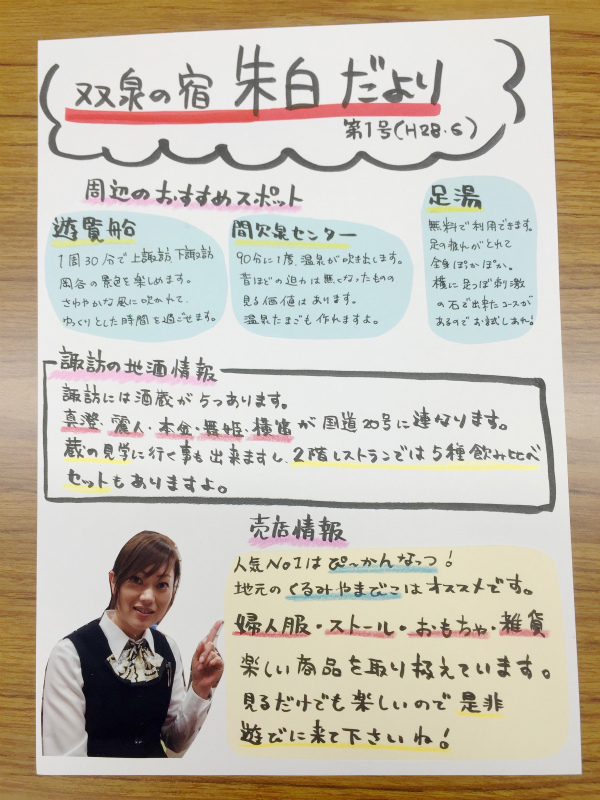 双泉の宿 朱白だより
第1号(H28.6)
周辺のおすすめスポット
遊覧船
1周30分で上諏訪、下諏訪
岡谷の景色を楽しめます。
さわやかな風に吹かれて、
ゆっくりとした時間を過ごせます。
間欠泉センター
90分に1度、温泉が吹き出します。
昔ほどの迫力は無くなったものの
見る価値はあります。
温泉たまごも作れますよ。
足湯
無料で利用できます。
足の疲れがとれて
全身ぽかぽか。
横に足つぼ刺激
の石で出来たコースが
あるのでお試しあれ!
諏訪の地酒情報
諏訪には酒蔵が5つあります。
真澄・麗人・本金・舞姫・横笛が国道20号に連なります。
蔵の見学に行く事も出来ますし、2階レストランでは5種飲み比べ
セットもありますよ。
売店情報
人気No1はぴーかんなっつ!
地元のくるみやまびこはオススメです。
婦人服・ストール・おもちゃ・雑貨
楽しい商品を取り扱えています。
見るだけでも楽しいので是非
遊びに来て下さいね!